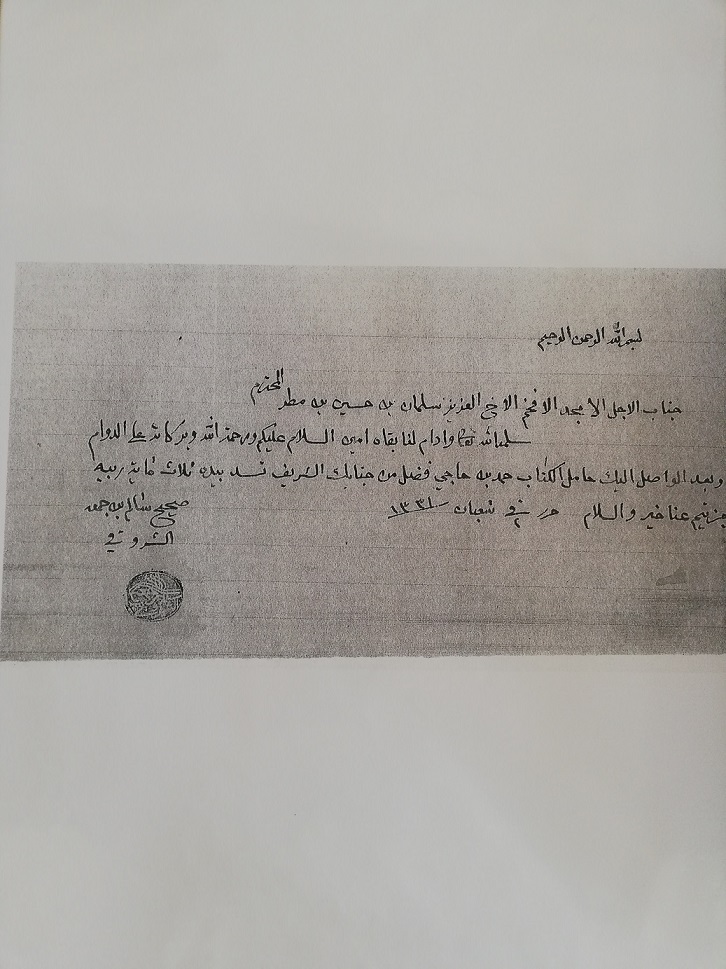 بسم الله الرحمن الرحيم
جناب الاجل الامجد الافخم الاخ العزيز سلمان بن حسين بن مطر المحترم
سلمه الله تعالى وادام لنا بقاه امين السلام عليكم ورحمة الله وبركاته على الدوام
وبعد الواصل اليك حامل الكتاب حمد بن حاجي فضل من جنابك الشريف تسد بيده ثلاث مايه ربيه
جزيتم عنا خير والسلام حرر في ٢ شعبان ١٣٣١
صحيح سالم بن جمعه